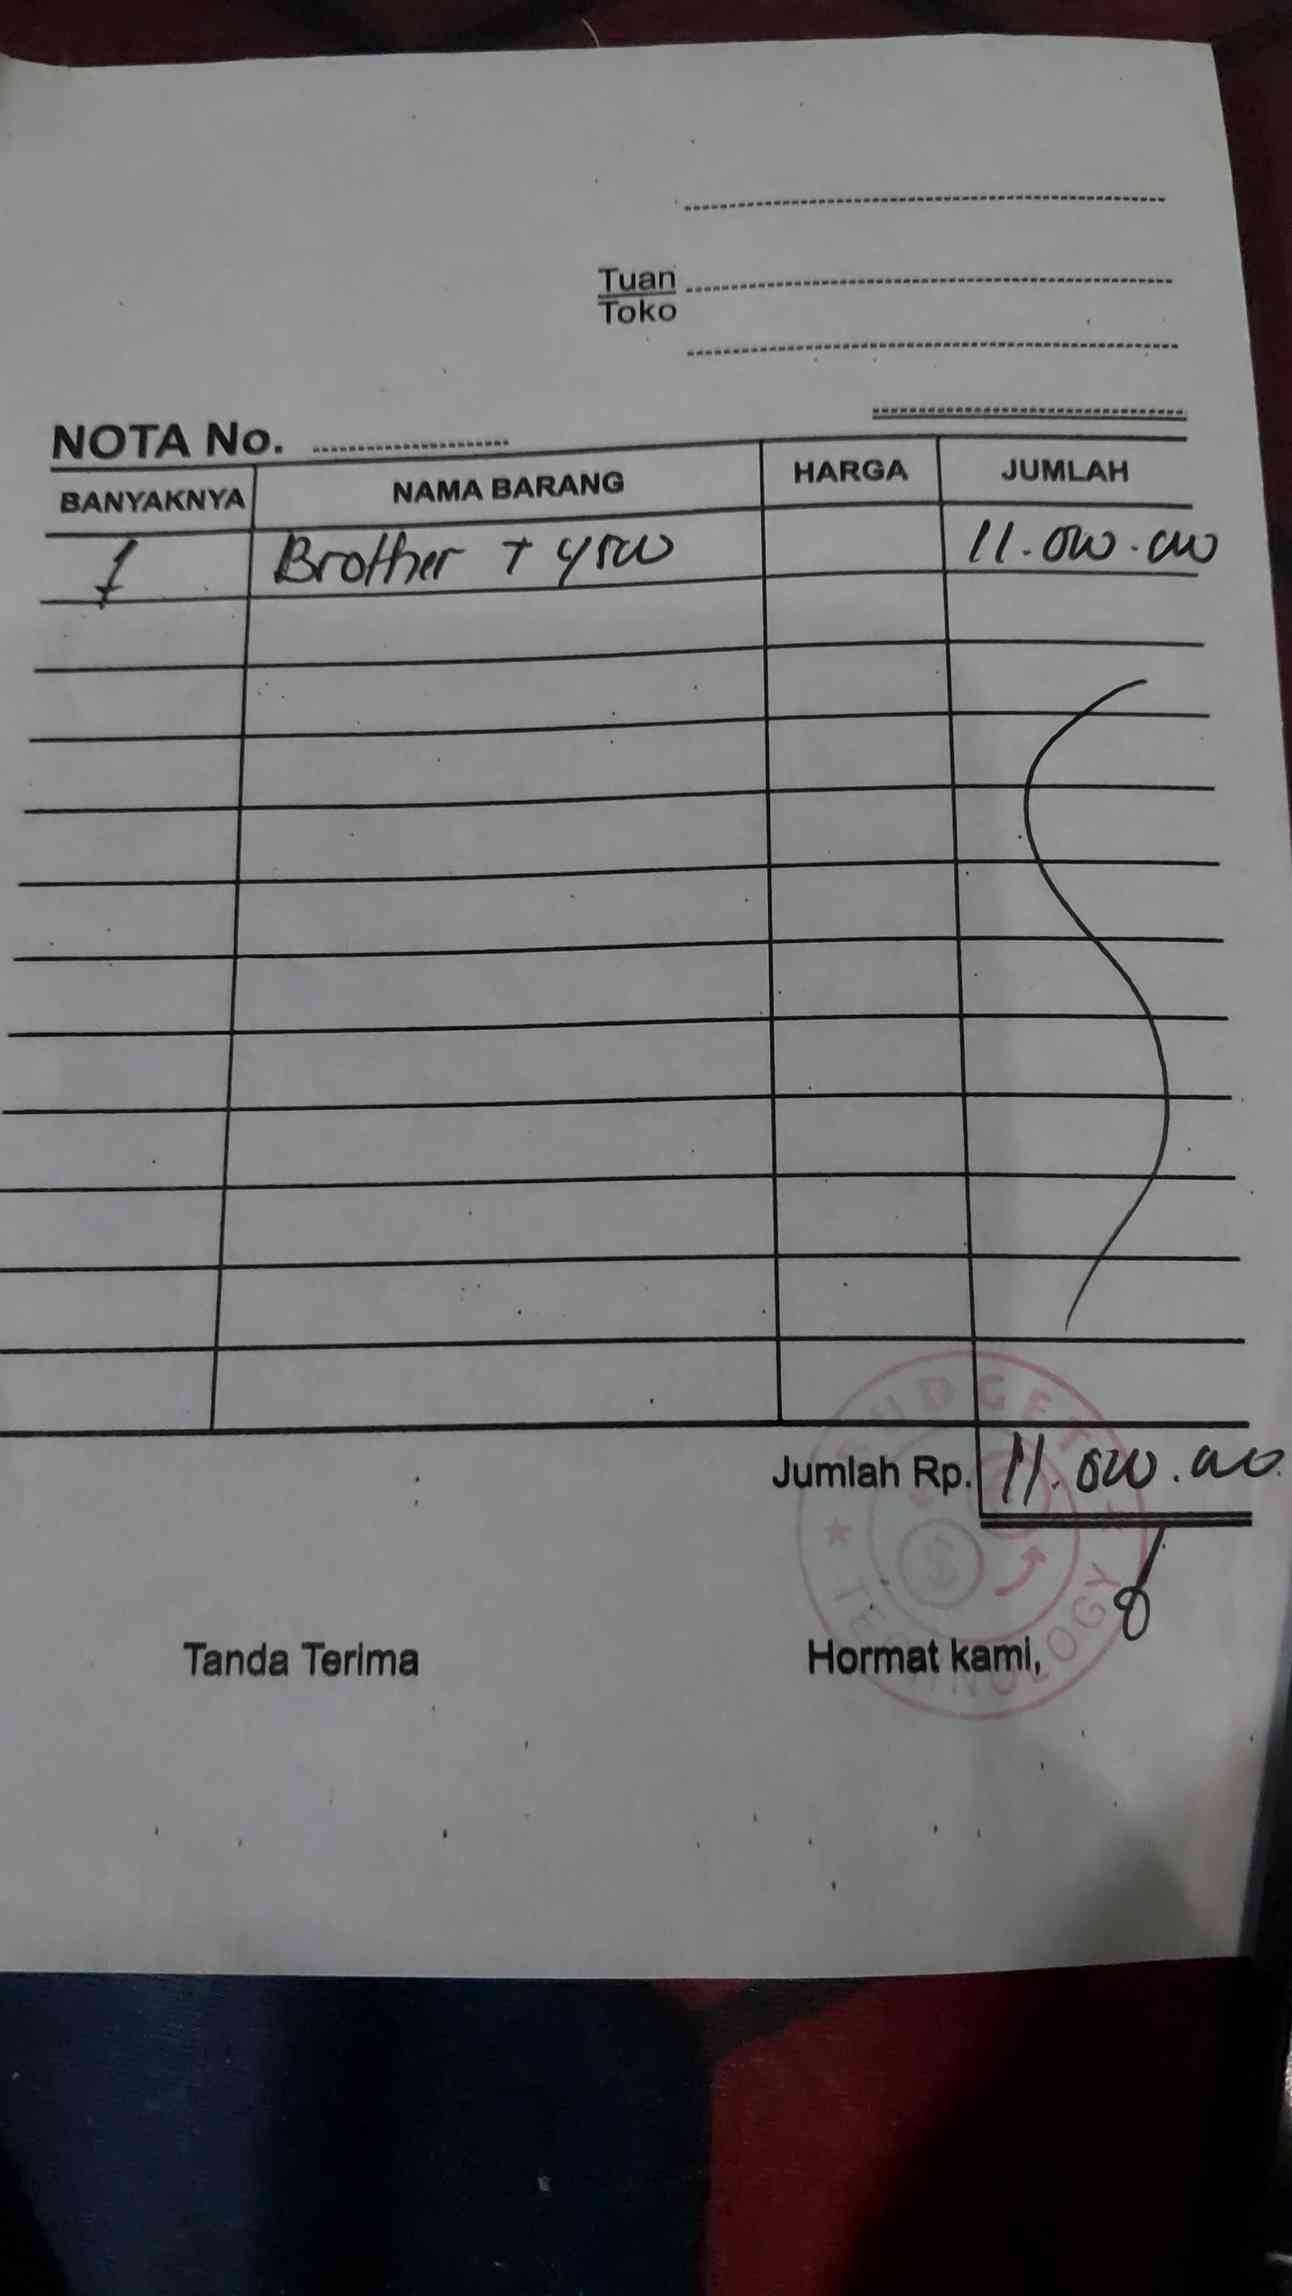 Tuan
Toko
NOTA No.
BANYAKNYA NAMA BARANG HARGA JUMLAH
1 Brother T 4500 11.000.000
Jumlah Rp. 11.000.000
BUDGET TECHNOLOGY
Tanda Terima Hormat kami,